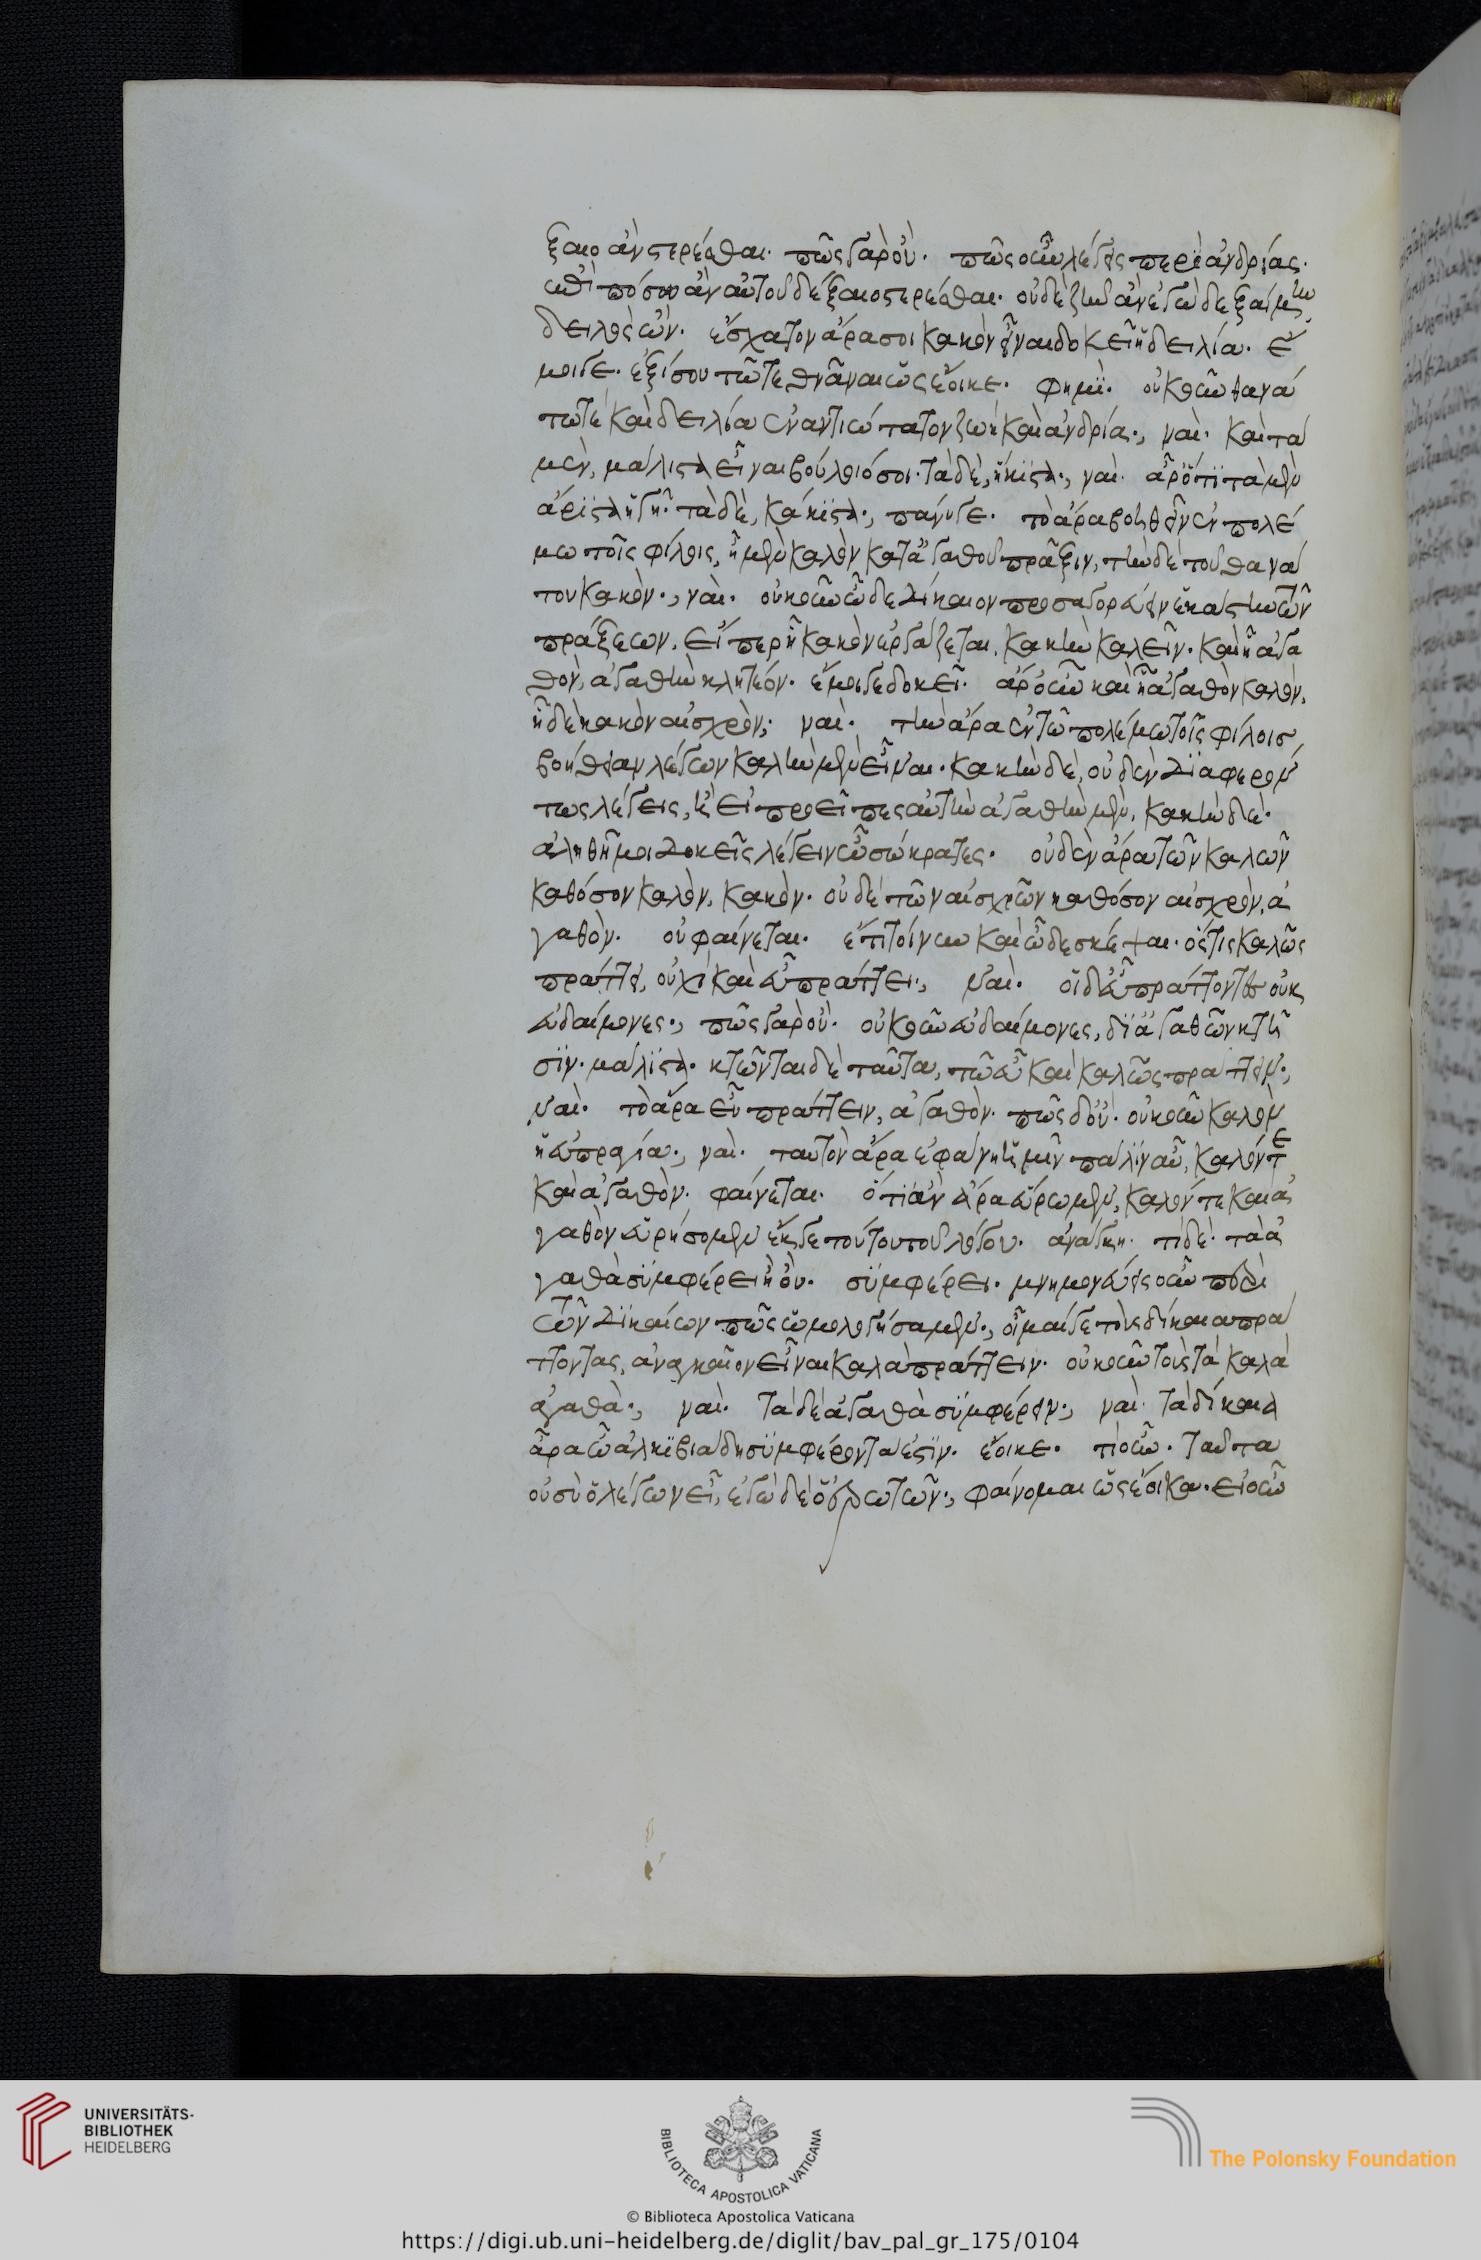 ξαιο ἂν στερέσθαι· πῶς γὰρ οὔ· πῶς οὖν λέγεις περὶ ἀνδρίας·
ἐπὶ πόσῳ ἂν αὐτοῦ δέξαιο στερέσθαι· οὐδὲ ζῆν ἂν ἐγὼ δεξαίμην
δειλὸς ὤν· ἔσχατον ἄρα σοι κακὸν εἶναι δοκεῖ ἡ δειλία· ἔ
μοιγε· ἐξίσου τῶ τεθνᾶναι ὡς ἔοικε· φημί· οὐκοῦν θανά
τω τὲ καὶ δειλία ἐναντιώτατον ζωὴ καὶ ἀνδρία·, ναί· καὶ τὰ
μὲν, μάλιστα εἶναι βούλοιό σοι· τὰ δὲ, ἥκιστα·, ναί· ἆρ' ὅτι τὰ μὲν
ἄριστα ἡγῆ· τὰ δὲ, κάκιστα·, πάνυγε· τὸ ἄρα βοηθεῖν ἐν πολέ
μω τοῖς φίλοις, ἧ μὲν καλὸν κατ' ἀγαθοῦ πρᾶξιν, τὴν δὲ τοῦ θανά
του κακόν·, ναί· οὐκοῦν ὧδε δίκαιον προσαγορεύειν ἑκάστην τῶν
πράξεων. εἴπερ ἧ κακὸν ἐργάζεται, κακὴν καλεῖν· καὶ ἧ ἀγα
θὸν, ἀγαθὴν κλητέον· ἔμοιγε δοκεῖ· ἆρ' οὖν καὶ ἧ ἀγαθὸν καλὸν,
ἧ δὲ κακὸν αἰσχρὸν; ναί· τὴν ἄρα ἐν τῶ πολέμω τοῖς φίλοισ
βοήθειαν λέγων καλὴν μὲν εἶναι· κακὴν δὲ, οὐδὲν διαφερόν
τως λέγεις, ἢ εἰ προεῖπες αὐτὴν ἀγαθὴν μὲν, κακὴν δέ·
ἀληθῆ μοι δοκεῖς λέγειν ὦ σώκρατες· οὐδὲν ἄρα τῶν καλῶν
καθόσον καλὸν, κακόν· οὐδὲ τῶν αἰσχρῶν καθόσον αἰσχρὸν, ἀ
γαθόν· οὐ φαίνεται· ἔτι τοίνυν καὶ ὧδε σκέψαι· ὅστις καλῶς
πράττει, οὐχὶ καὶ εὖ πράττει·, ναί· οἱ δ' εὖ πράττοντες οὐκ
εὐδαίμονες·, πῶς γὰρ οὔ· οὐκοῦν εὐδαίμονες, δι' ἀγαθῶν κτῆ
σιν· μάλιστα· κτῶνται δὲ ταῦτα, τῶ εὖ καὶ καλῶς πράττειν·,
ναί· τὸ ἄρα εὖ πράττειν, ἀγαθόν· πῶς δ' οὔ· οὐκοῦν καλὸν
ἡ εὐπραγία·, ναί· ταυτὸν ἄρα ἐφάνη ἡμῖν πάλιν αὖ, καλόν τε
καὶ ἀγαθόν· φαίνεται· ὅτι ἂν ἄρα εὕρωμεν, καλόν τε καὶ ἀ
γαθὸν εὑρήσομεν ἔκ γε τούτου τοῦ λόγου· ἀνάγκη· τί δέ· τὰ ἀ
γαθὰ συμφέρει ἢ οὔ· συμφέρει· μνημονεύεις οὖν περὶ
τῶν δικαίων πῶς ὡμολογήσαμεν·, οἶμαί γε τοὺς δίκαια πρά
ττοντας, ἀναγκαῖον εἶναι καλὰ πράττειν· οὐκοῦν τοὺς τὰ καλὰ
ἀγαθά·, ναί· τὰ δὲ ἀγαθὰ συμφέρειν·, ναί· τὰ δίκαια
ἄρα ὦ ἀλκιβιάδη συμφέροντα ἐστίν· ἔοικε· τί οὖν· ταῦτα
οὐ σὺ ὁ λέγων εἶ, ἐγὼ δὲ ὁ ἐρωτῶν·, φαίνομαι ὡς ἔοικα· εἰ οὖν
UNIVERSITÄTS-
BIBLIOTHEK
HEIDELBERG
BIBLIOTECA APOSTOLICA VATICANA
The Polonsky Foundation
© Biblioteca Apostolica Vaticana
https://digi.ub.uni-heidelberg.de/diglit/bav_pal_gr_175/0104